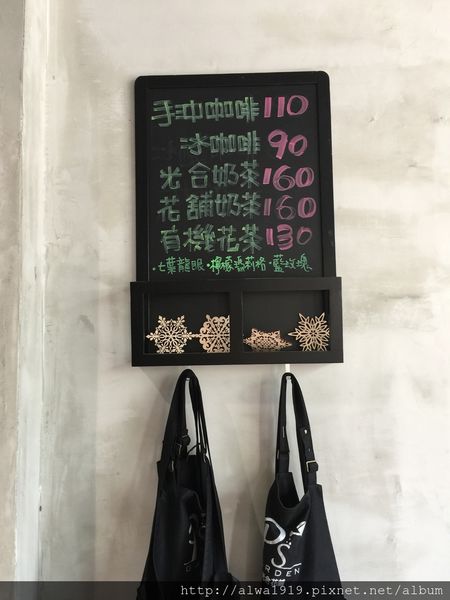 手中咖啡 110
冰咖啡 90
光合奶茶 160
花舖奶茶 160
有機花茶 130
·七葉龍眼·檸檬瑪莉格·藍玫瑰
RDEN
http://alwa1919.pixnet.net/album